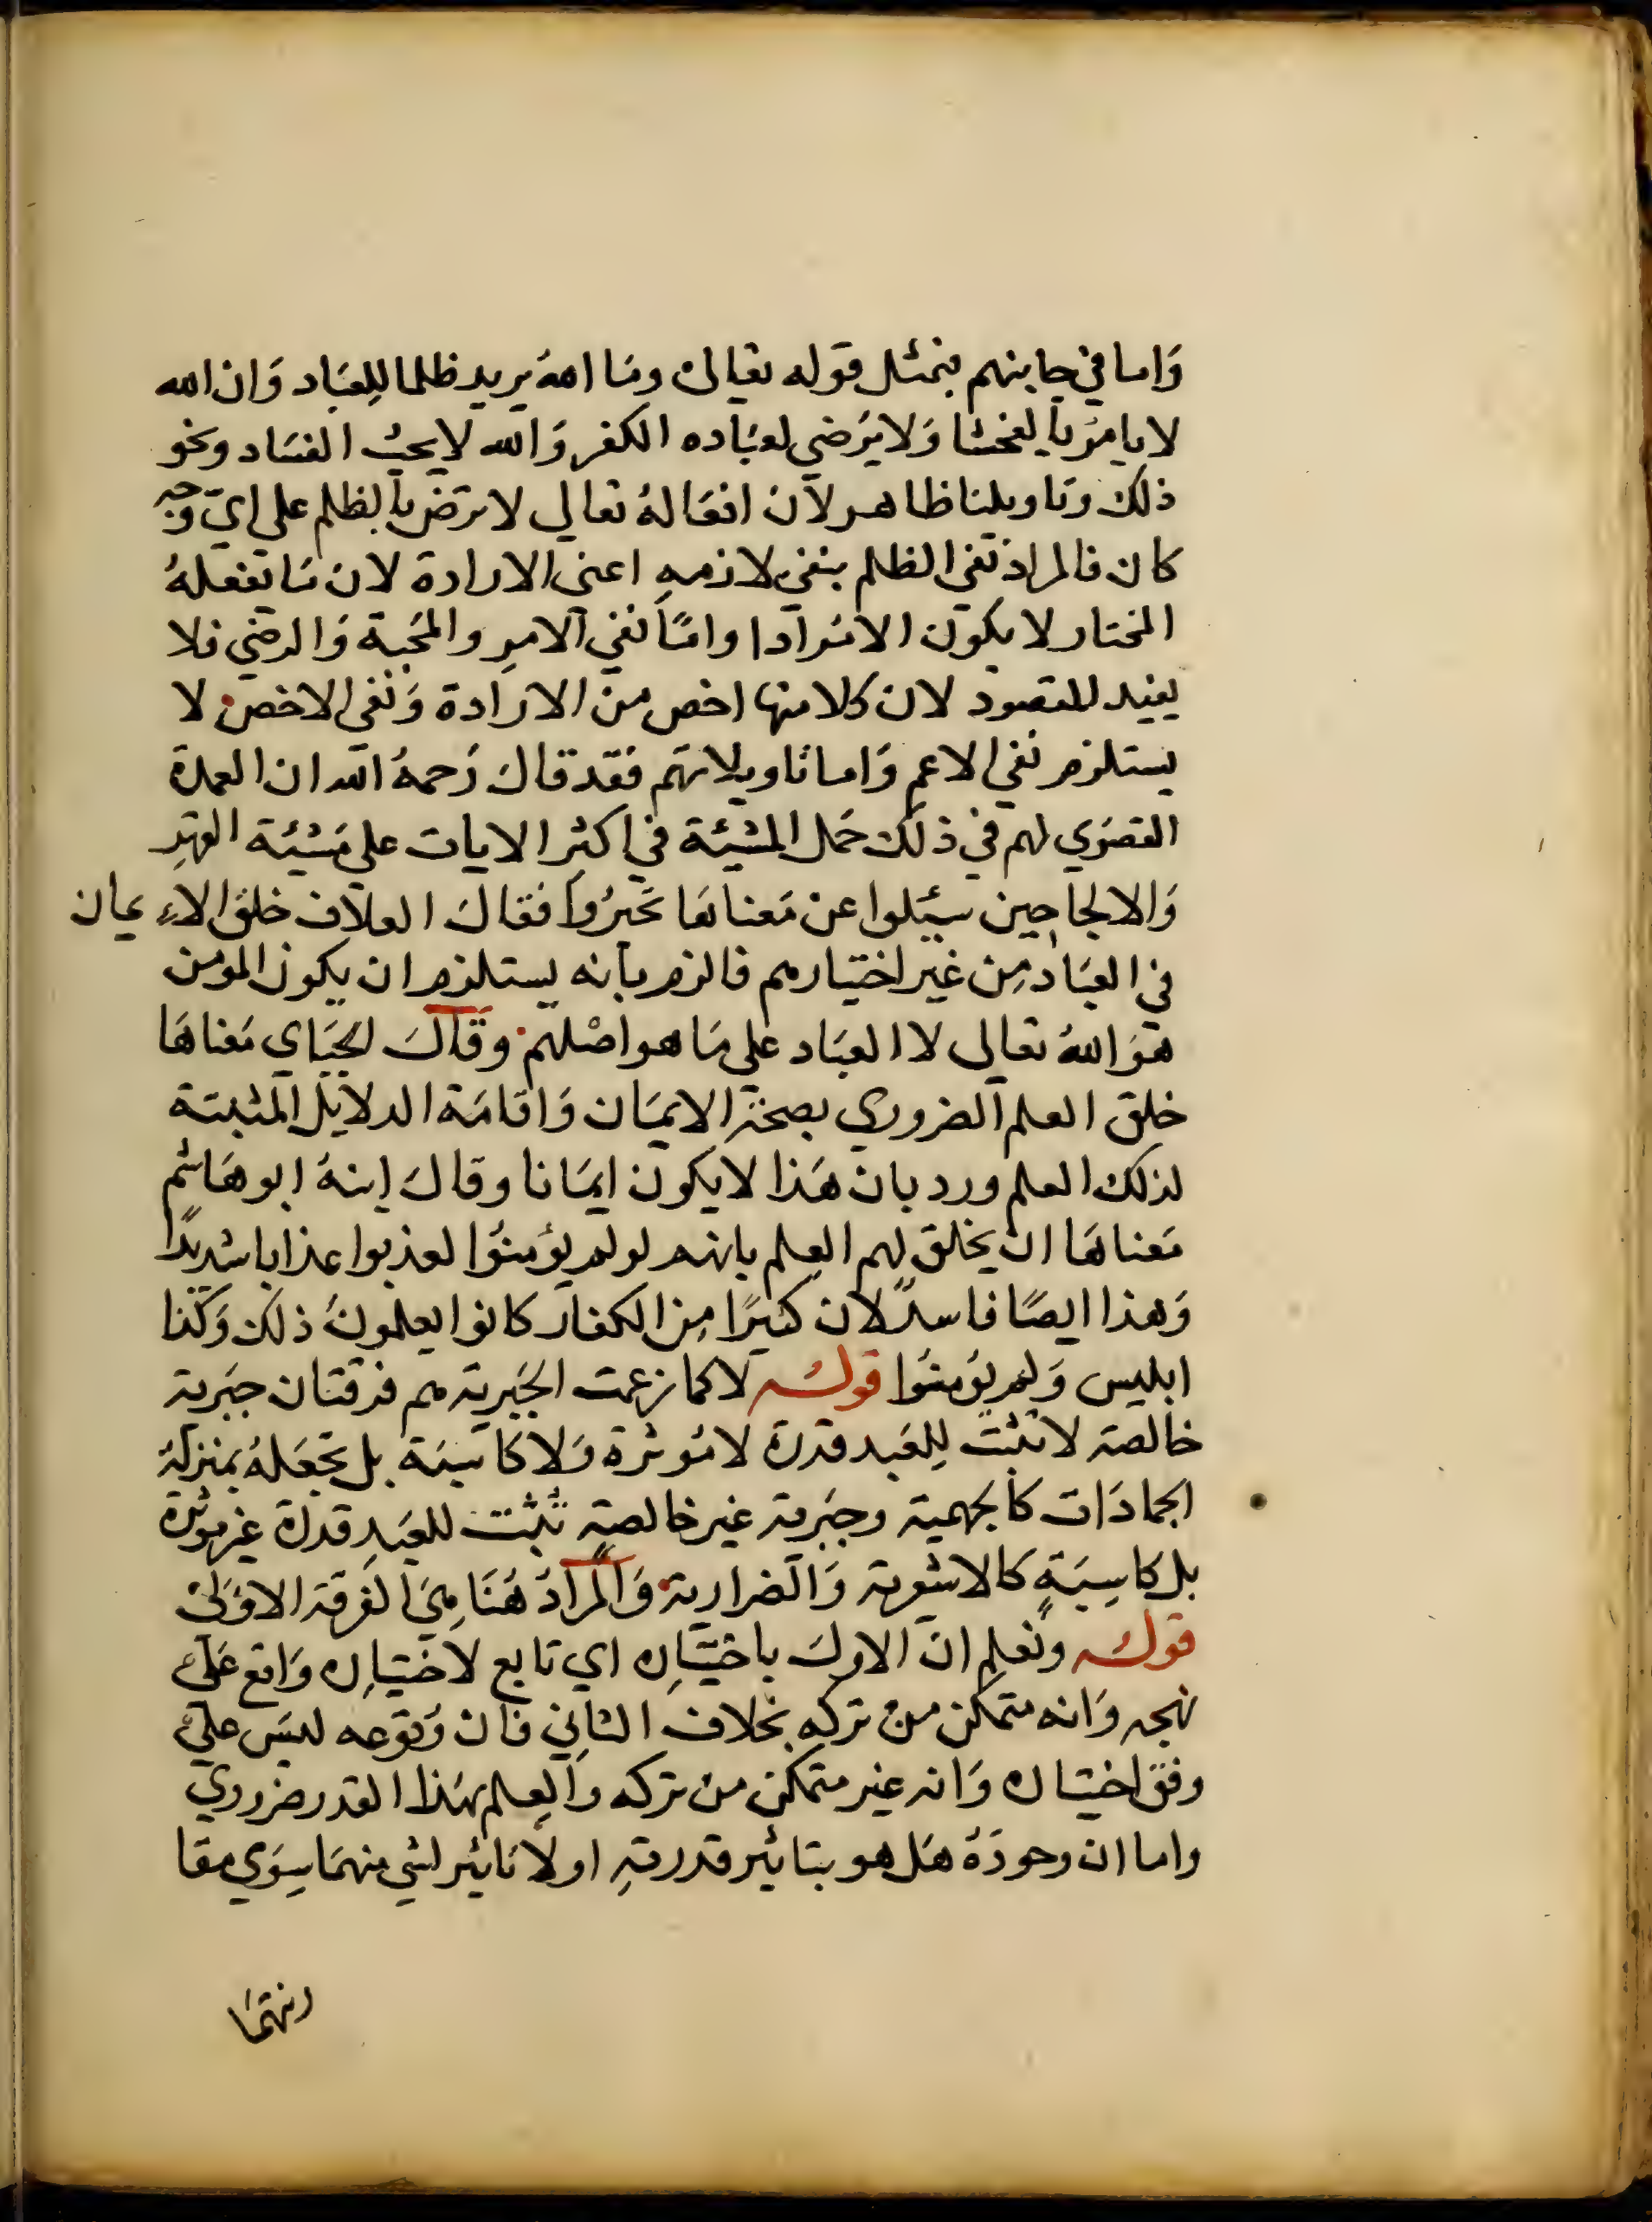 وَاما في جابنهم فبمثل قوله تعالى ومَا اللهُ يريد ظلما لِلعبَاد وَان الله
لا يامرُ بالفحشا وَلا يَرضي لعبَاده الكفر وَالله لا يحبُ الفسَاد ونحو
ذلك وتاويلنا ظاهر لان افعَالهُ تعالي لا توصَف بالظلم علي ايّ وجه
كان فالمراد نفي الظلم بنفي لازمهِ اعني الارادة لان مَا يفعلهُ
المختار لا يكون الا مُرادا وامَّا نفي الامرِ والمحَبة وَالرضي فلا
يفيد المقصود لان كلا منها اخص من الارادة وَنفي الاخص لا
يستلزم نفي الاعم وَاما تاويلاتهم فقد قالَ رَحمهُ الله ان العمدة
القصوَي لهم في ذلك حَمل المشيئة في اكثر الايات علي مَشيئة القهرِ
وَالالجا حين سيُلوا عن مَعناهَا تحَيرُوا فقالَ العلاف خلق الا يمان
في العبَاد مِن غير اختيارهم فالزم بانه يستلزم ان يكون المومن
هوَ اللهُ تعالي لا العبَاد علي مَا هو اصْلهم وقالَ الجبَاي مَعناهَا
خلق العلم الضروري بصحة الايمَان وَاقامَة الدلايل المثبتة
لذلك العلم ورد بان هَذا لا يكون ايمَانا وقالَ ابنهُ ابو هَاشم
مَعناهَا ان يخلق لهم العِلم بانهم لو لم يؤمِنوُا لعذبوا عذابا شديدًا
وَهذا ايضًا فاسدٌ لان كثيرًا مِن الكفار كانوا يعلمونَ ذلك وَكذا
ابليس وَلم يؤمنُوا قوله لا كما زعمت الجَبرية هم فرقتان جبَرية
خالصة لا تثبت لِلعَبد قدرة لا مُوثرة وَلا كاسبَة بل تجعَلهُ بمنزلة
الجمادَات كالجهمية وجبَرية غير خالصةٍ تُثبت للعَبدِ قدرة غير موثرة
بل كاسِبَةٍ كالاشعرية وَالضرارية وَالمرادُ هُنَا هيَ الفرقة الاوَلى
قوله ونَعلم ان الاول باختيَاره اي تابع لاختيَاره وَاقع عَلي
نهجه وَانه متمكن من تركه بخلاف الثاني فان وُقوعه ليسَ علي
وفق اختيَاره وَانه غير متمكن من تركه وَالعِلم بهَذا القدر ضروري
واما ان وجودَهُ هَل هو بتاثير قدرتهِ او لا تاثير لشي منهمَا سِوَي مقا
رنتهمَا